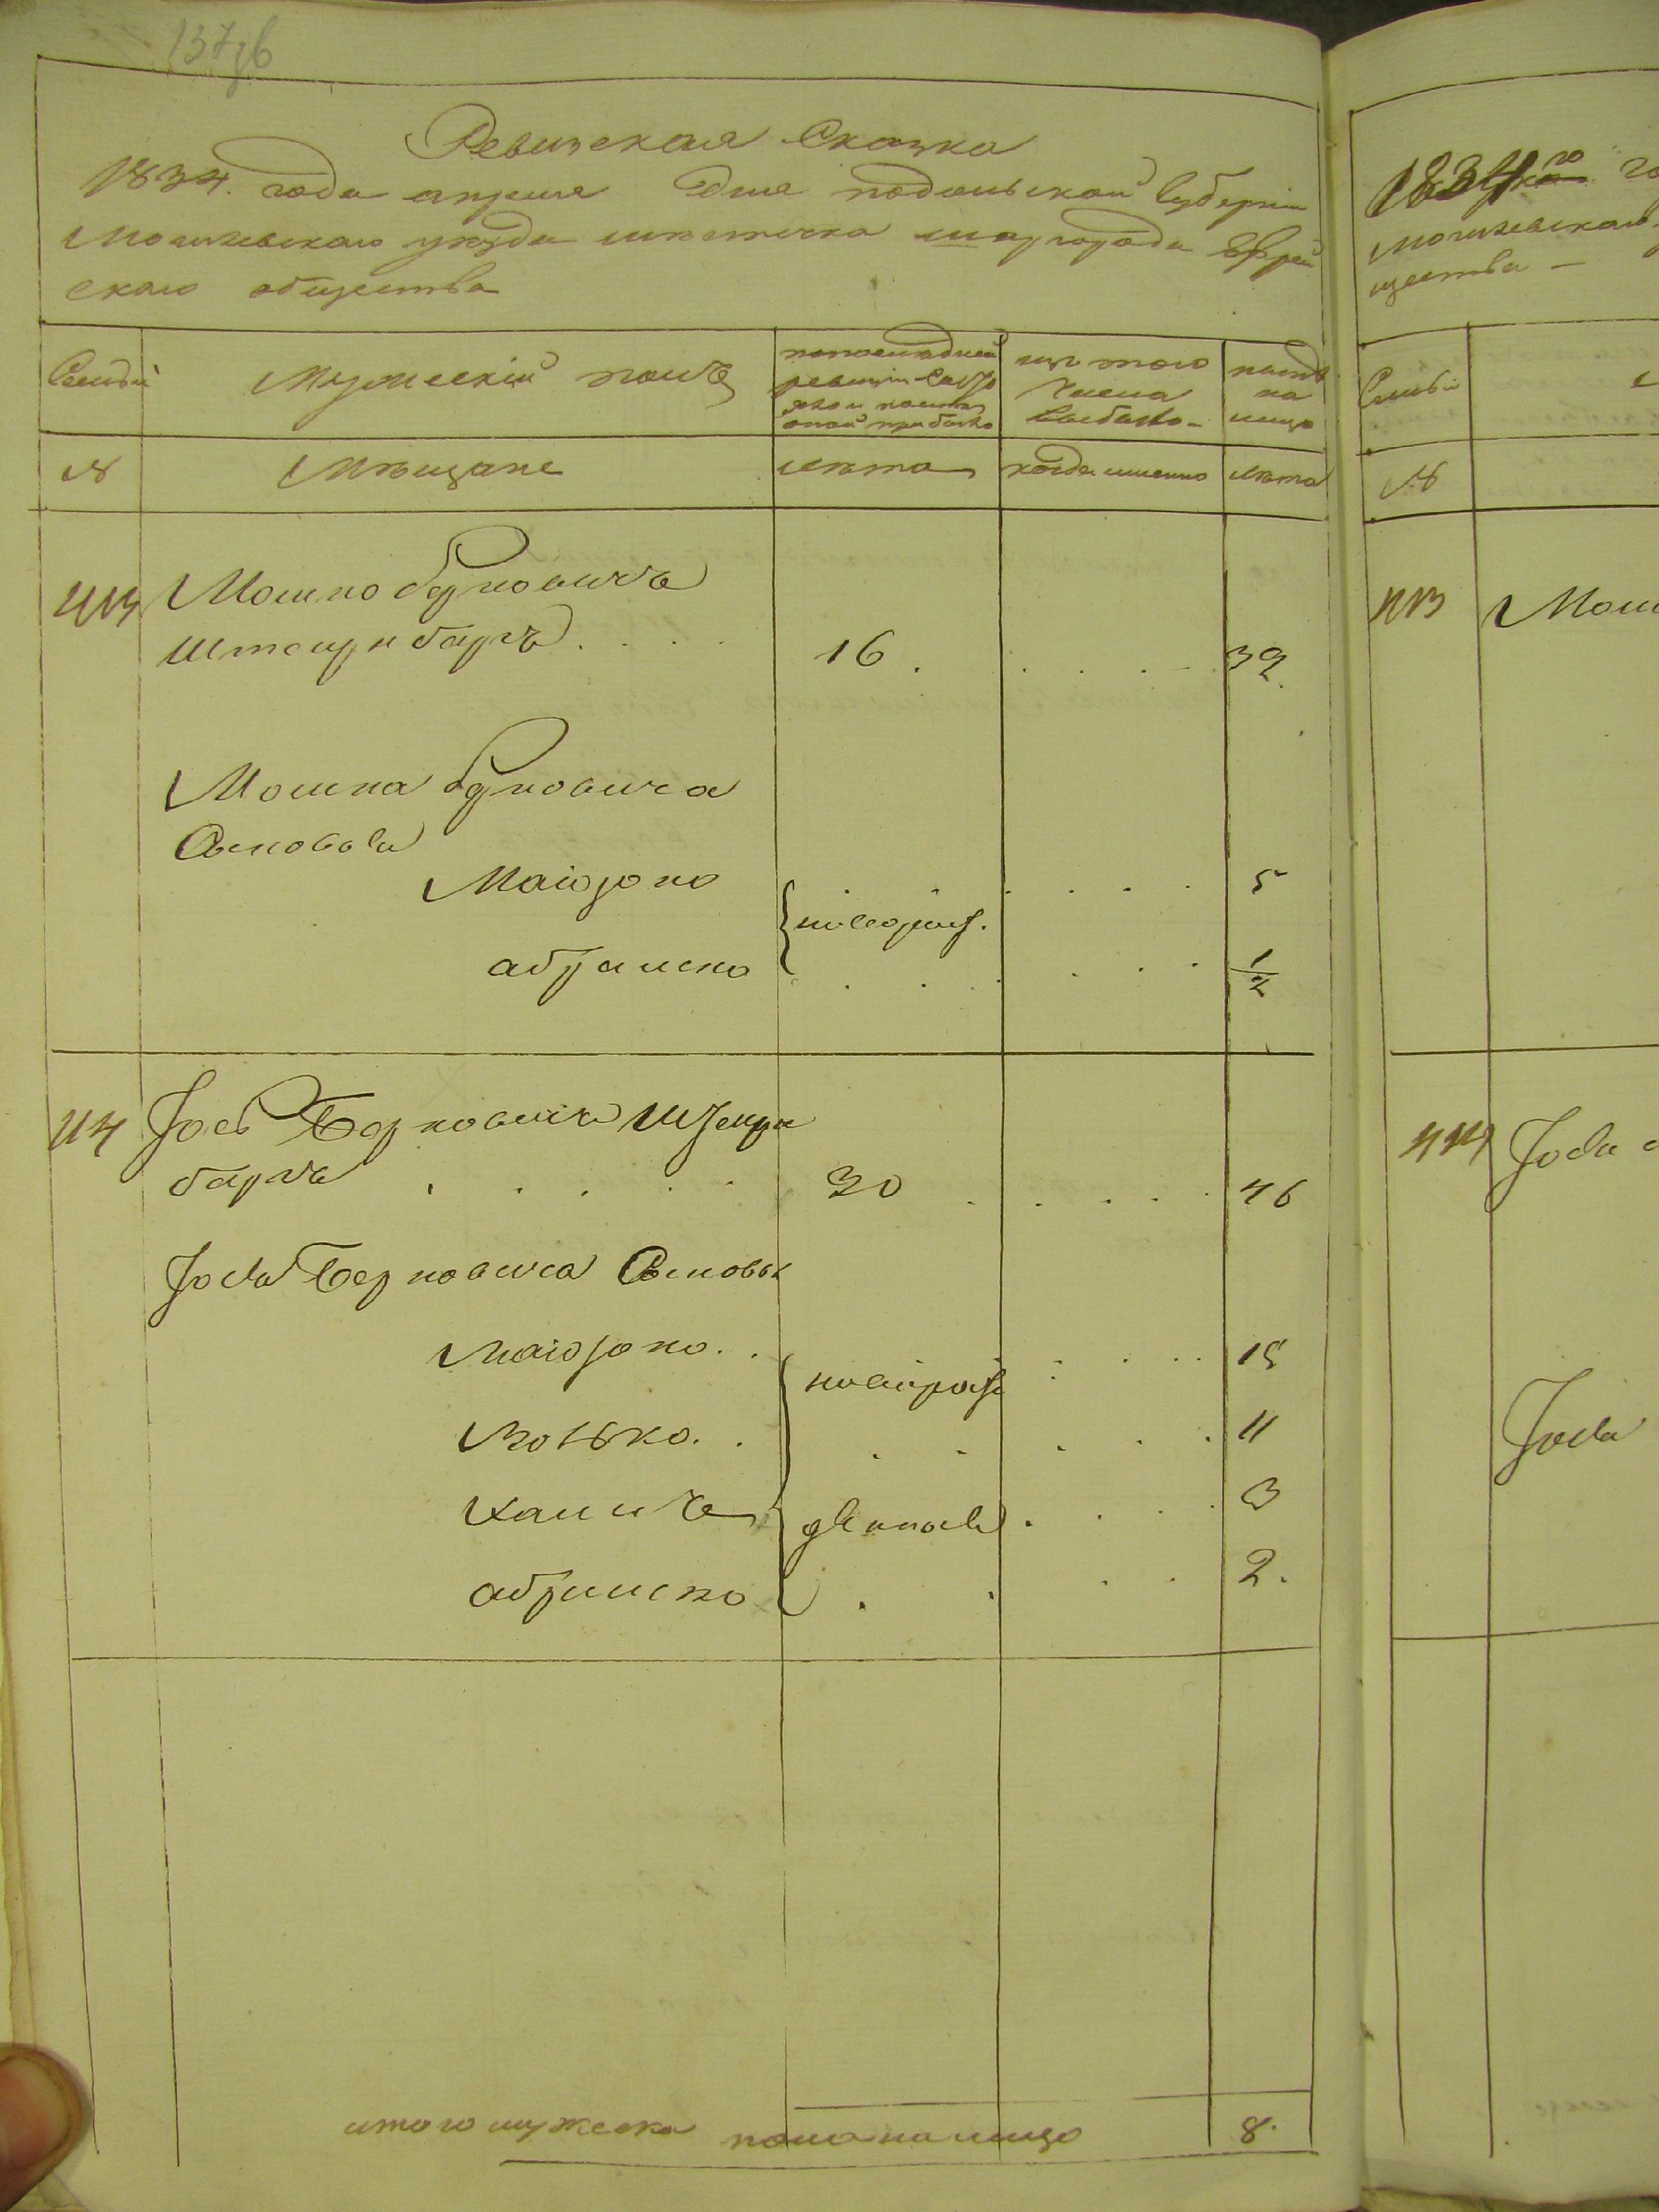 137 дв
Ревизская Сказка
1834. года апреля дня подольской Губернии
Могилевскаго уезда местечка шаргорода Еврей
скаго общества
Семьи
Мужескій полъ
по последней
ревизіи состо
яло и после
оной прибыло
изъ того
числа
выбыло
ныне
на
лицо
№
Мѣщане
лѣта
когда именно
лѣта
113
Мошко берковичъ
Штейнбаргъ
16
32
Мошка берковича
Сыновья
Маіорко
новорож.
5
абрамко
1/2
114
Іось Берковичъ Штейн
баргъ
30
46
Іося Берковича Сыновья
Маіорко
новорож
15
Волько
11
Хаимъ
3
абрамко
2.
итого мужеска пола на лицо
8.
1834го го
могилевскаго
щества
Семьи
№
113
Мош
114
Іося
Іося